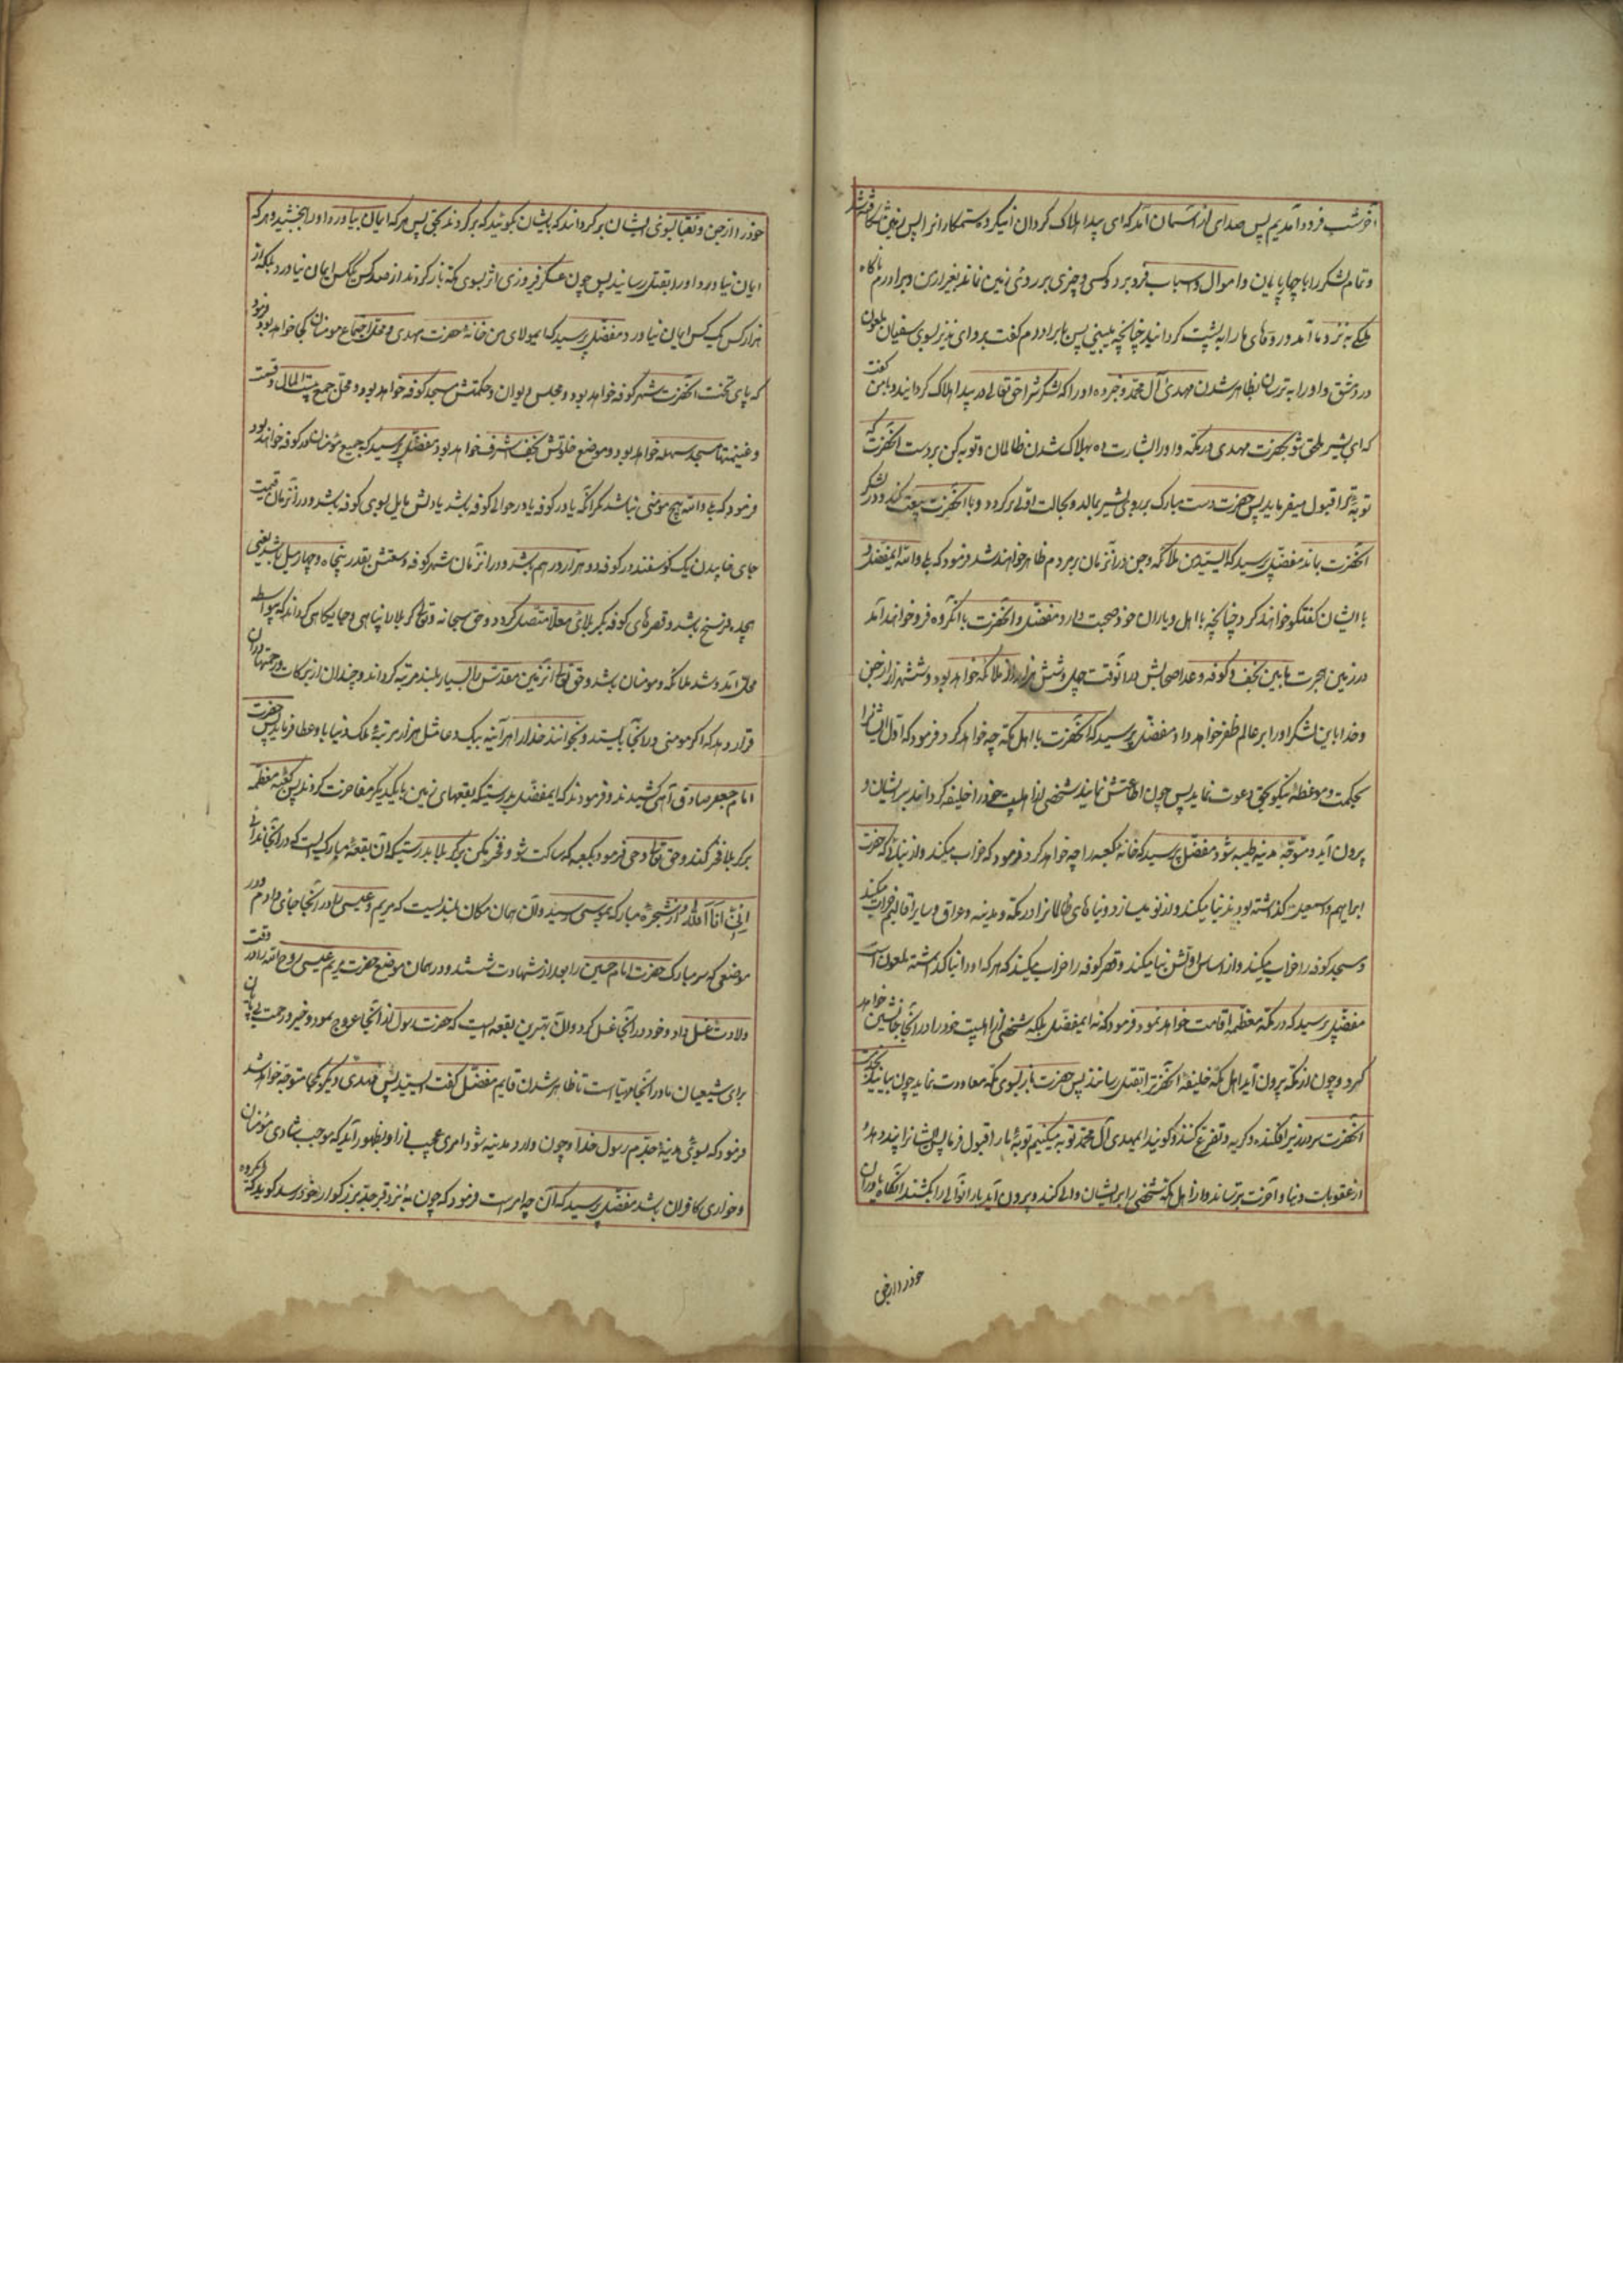 آخر شب فرود آمدیم پس صدای از آسمان آمد که ای بیدا هلاک کردان انیکروه ستمکارانرا پس زمین شکافته شد
و تمام لشکر را با چهارپایان و اموال و اسباب فرو برد و کسی و چیزی بر روی زمین نماند بغیر از من و برادرم ناکاه
ملکی به نزد ما آمد و روهای ما را به پشت کردانید چنانچه میبینی پس با برادرم گفت برو ای نذیر بسوی سفیان ملعون
در دمشق و او را بترسان بظاهر شدن مهدی آل محمد و خبر ده او را که لشکرش را حق تعالی در بیدا هلاک کردانید و با من گفت
که ای بشیر ملحق شو بحضرت مهدی در مکه و او را بشارت ده بهلاک شدن ظالمان و توبه کن بر دست آنحضرت که
توبه ترا قبول میفرماید پس حضرت دست مبارک بر روی بشیر بمالد و بحالت اول برکردد و با آنحضرت بیعت کند و در لشکر
آنحضرت بماند مفضل پرسید که ای سید من ملائکه و جن در آنزمان بر مردم ظاهر خواهند شد فرمود که بلی والله ایمفضل و
با ایشان گفتگو خواهند کرد چنانچه با اهل و یاران خود صحبت دارد مفضل و آنحضرت با آنکروه فرو خواهند آمد
در زمین هجرت مابین نجف و کوفه و عدد اصحابش در آنوقت چهل و شش هزار از ملائکه خواهد بود و ششهزار از جن
و خدا باین لشکر او را بر عالم ظفر خواهد داد مفضل پرسید که آنحضرت با اهل مکه چه خواهد کرد فرمود که اول ایشانرا
بحکمت و موعظه نیکو بحق دعوت نماید پس چون اطاعتش نمایند شخصی از اهلبیت خود را خلیفه کرداند بر ایشان و
بیرون آید و متوجه مدینه طیبه شود مفضل پرسید که خانه کعبه را چه خواهد کرد فرمود که خراب میکند و از بنائی که حضرت
ابراهیم و اسمعیل گذاشته بودند بنا میکند و از نو میسازد و بناهای ظالمانرا در مکه و مدینه و عراق و سایر اقالیم خراب میکند
و مسجد کوفه را خراب میکند و از اساس اولش بنا میکند و قصر کوفه را خراب میکند که هر که او را بنا گذاشته ملعون است
مفضل پرسید که در مکه معظمه اقامت خواهد نمود فرمود که نه ایمفضل بلکه شخصی از اهلبیت خود را در آنجا جانشین خواهد
کرد و چون از مکه بیرون آید اهل مکه خلیفه آنحضرترا بقتل رسانند پس حضرت باز بسوی مکه معاودت نماید چون بیایند بخدمت
آنحضرت سر در زیر افکنده و کریه و تضرع کنند و کویند ایمهدی آل محمد توبه میکنیم توبه ما را قبول فرما پس ایشانرا پند دهد و
از عقوبات دنیا و آخرت بترساند و از اهل مکه شخصی را بر ایشان والی کند و بیرون آید باز آنوالی را بکشند آنکاه یاوران
خود را از جن
خود را از جن و نقبا بسوی ایشان برکرداند که بایشان بگوئید که برکردند بحق پس هر که ایمان بیاورد او را ببخشید و هر که
ایمان نیاورد او را بقتل رسانید پس چون عسکر فیروزی اثر بسوی مکه بازکردند از صد کس یک کس ایمان نیاورد بلکه از
هزار کس یک کس ایمان نیاورد مفضل پرسید که ایمولای من خانه حضرت مهدی و محل اجتماع مومنان کجا خواهد بود فرمود
که پای تخت آنحضرت شهر کوفه خواهد بود و مجلس دیوان و حکمتش مسجد کوفه خواهد بود و محل جمع بیت المال و قسمت
و غنیمتها مسجد سهله خواهد بود و موضع خلوتش نجف اشرف خواهد بود مفضل پرسید که جمیع مؤمنان در کوفه خواهند بود
فرمود که بلی والله هیچ مومنی نباشد مگر آنکه یا در کوفه یا در حوالی کوفه باشد یا دلش مایل بسوی کوفه باشد و در آنزمان قیمت
جای خوابیدن یک گوسفند در کوفه دو هزار درهم باشد و در آنزمان شهر کوفه وسعتش بقدر پنجاه و چهار میل باشد یعنی
هجده فرسخ باشد و قصرهای کوفه بکربلای معلا متصل کردد و حق سبحانه و تعالی کربلا را پناهی و جایکاهی کرداند که پیوسته
محل آمد و شد ملائکه و مومنان باشد و حق تعالی آنزمین مقدس را بسیار بلند مرتبه کرداند و چندان از برکات و رحمتها در آن
قرار دهد که اکر مومنی در آنجا بایستد و بخواند خدا را هر آینه بیک دعا مثل هزار مرتبه ملک دنیا باو عطا فرماید پس حضرت
امام جعفر صادق آهی کشیدند و فرمودند که ایمفضل بدرستیکه بقعهای زمین با یکدیکر مفاخرت کردند پس کعبه معظمه
بر کربلا فخر کند و حق تعالی وحی فرمود بکعبه که ساکت شو و فخر مکن بر کربلا بدرستیکه آن بقعه مبارکیست که در آنجا ندای
اِنّی اَنَا اللّه از شجره مبارکه بموسی رسید و آن همان مکان بلندیست که مریم و عیسی را در آنجا جای دادم و در
موضعی که سر مبارک حضرت امام حسین را بعد از شهادت شستند و در همان موضع حضرت مریم عیسی روح الله را در وقت
ولادت غسل داد و خود در آنجا غسل کرد و آن بهترین بقعه ایست که حضرت رسول از آنجا عروج نمود و خیر و رحمت بی پایان
برای شیعیان ما در آنجا مهیا است تا ظاهر شدن قایم مفضل گفت ای سید پس مهدی دیگر بکجا متوجه خواهد شد
فرمود که بسوی مدینه جدم رسول خدا و چون وارد مدینه شود امری عجیب از او بظهور آید که موجب شادی مؤمنان
و خواری کافران باشد مفضل پرسید که آن چه امر است فرمود که چون به نزد قبر جد بزرکوار خود رسد کوید که ایکروه